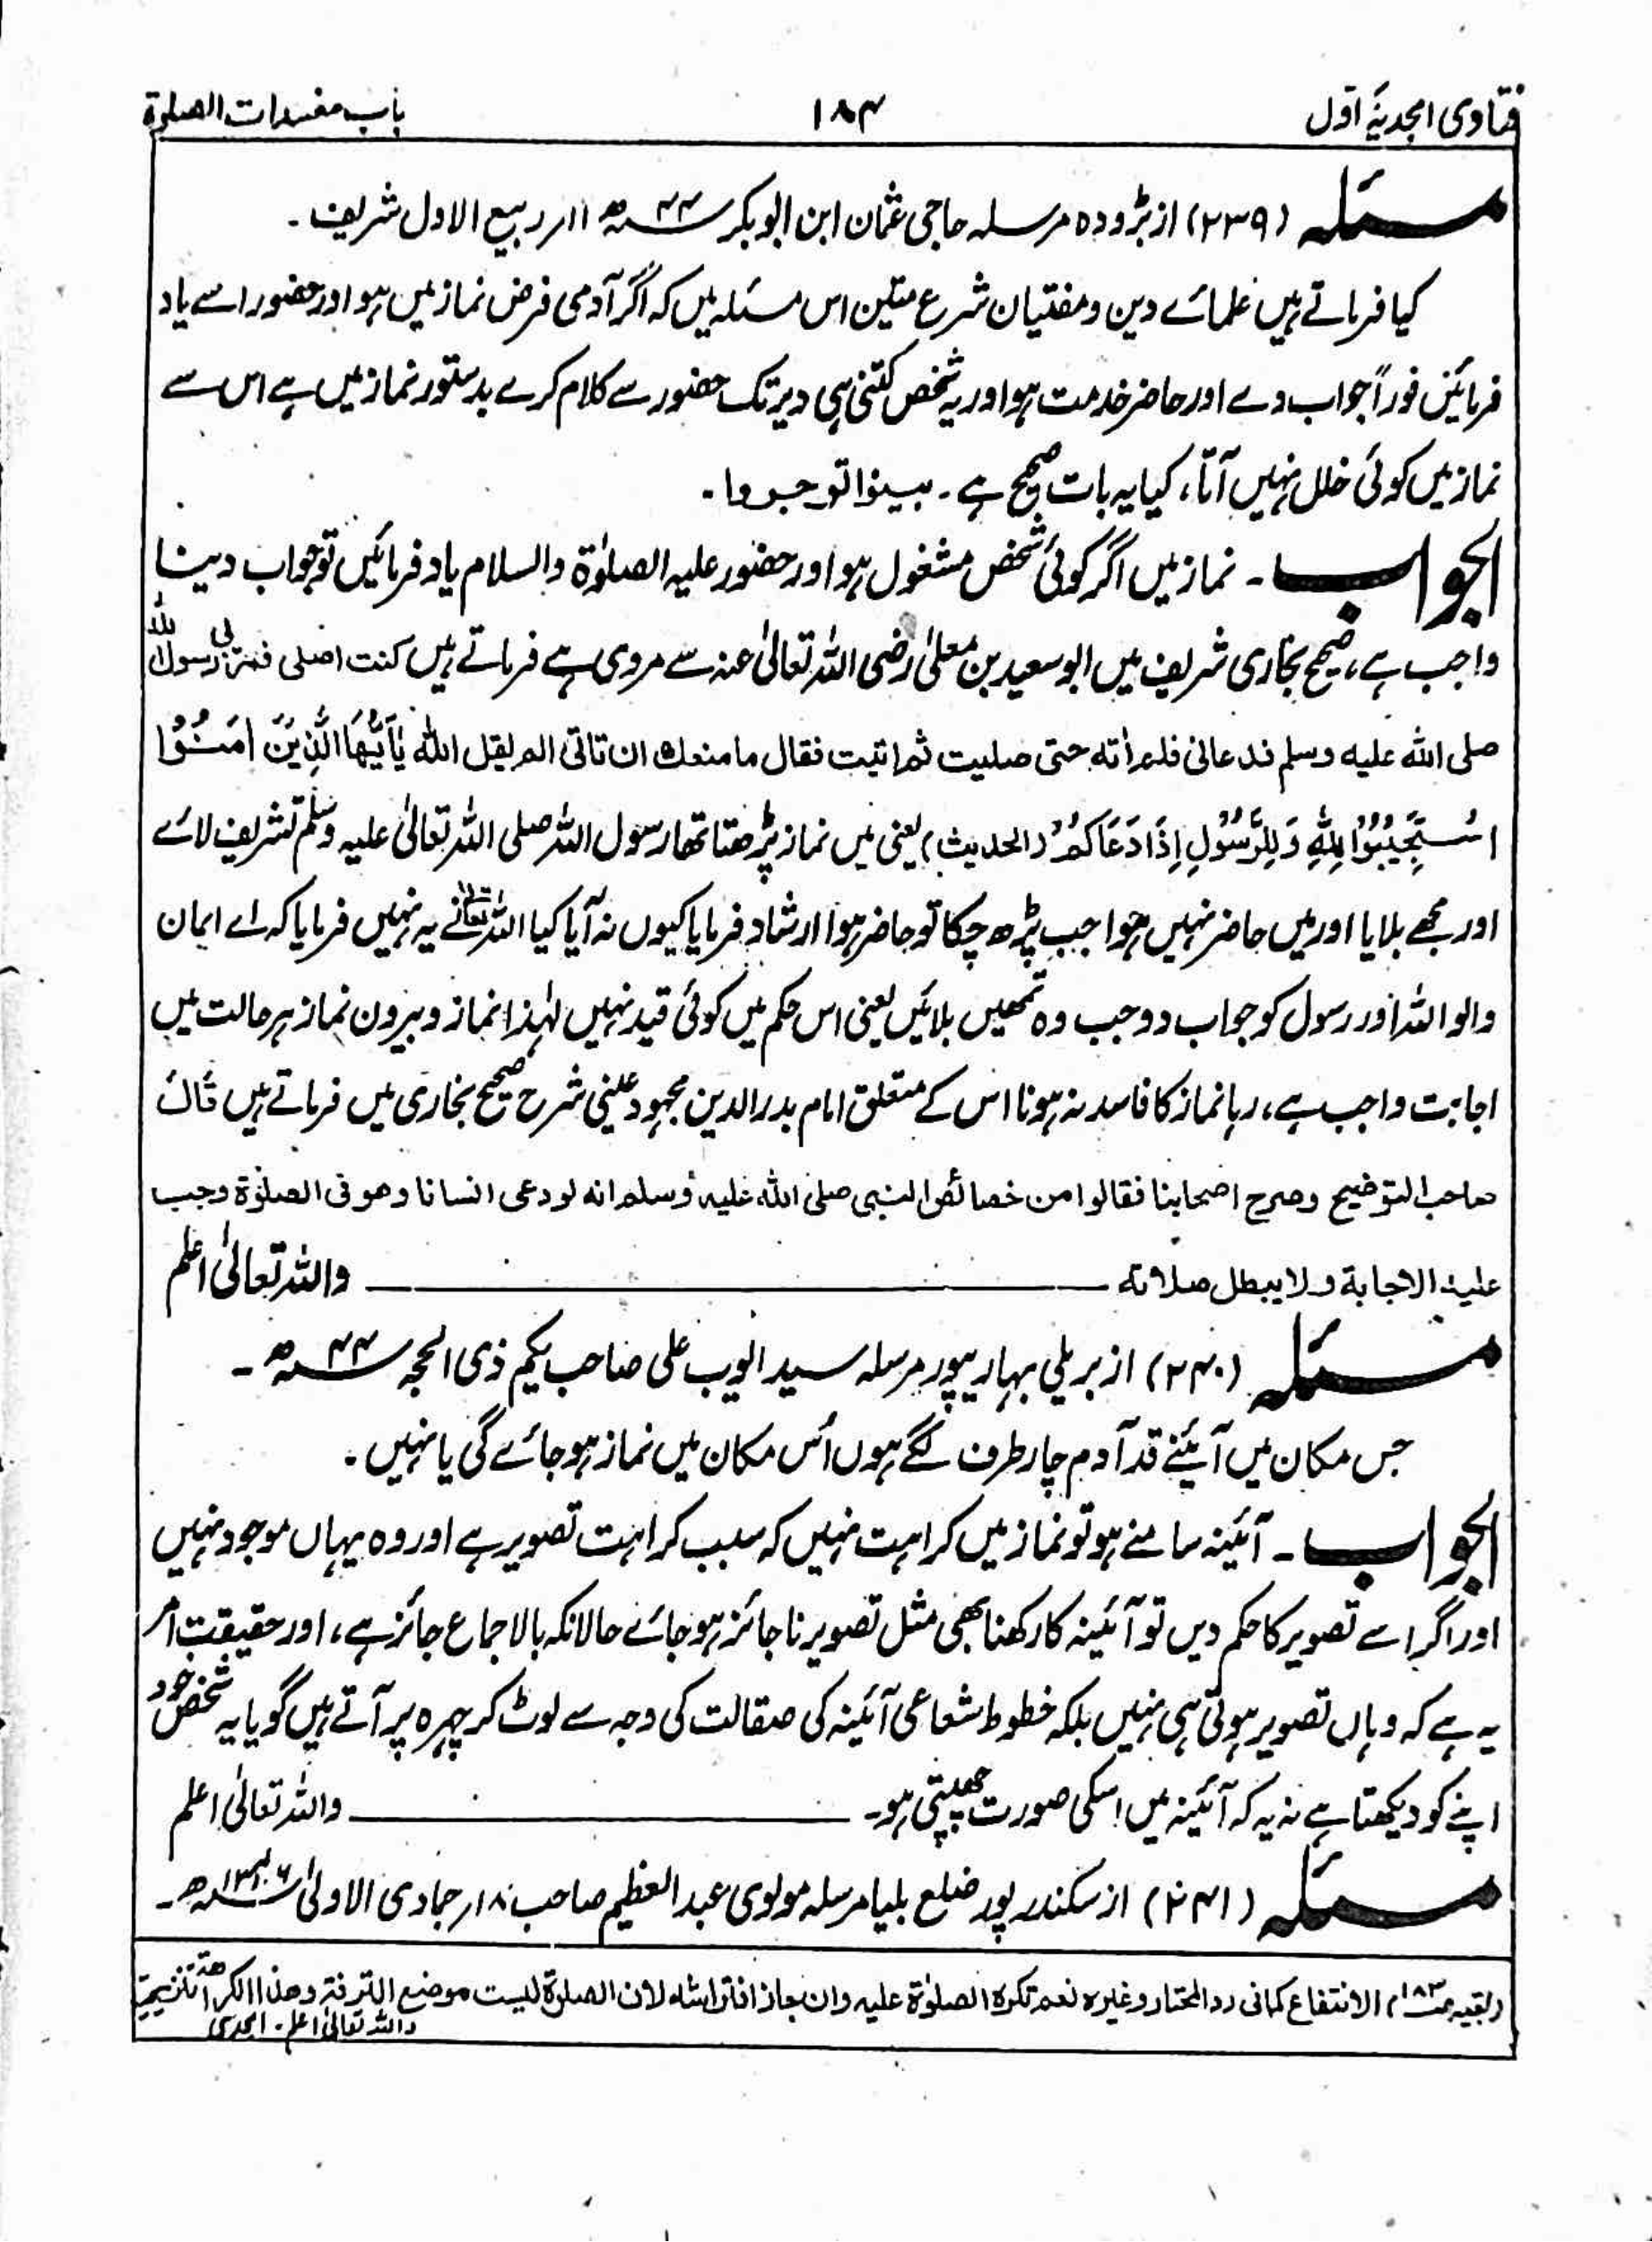 فتاوی امجدیہ اول
۱۸۴
باب مفسدات الصلوۃ
مسئلہ (۲۳۹) از بڑودہ مرسلہ حاجی عثمان ابن ابوبکر ۴۴ھ ۱۱ر ربیع الاول شریف ۔
کیا فرماتے ہیں علمائے دین و مفتیان شرع متین اس مسئلہ میں کہ اگر آدمی فرض نماز میں ہو اور حضور اسے یاد
فرمائیں فوراً جواب دے اور حاضر خدمت ہو اور یہ شخص کتنی ہی دیر تک حضور سے کلام کرے بدستور نماز میں ہے اس سے
نماز میں کوئی خلل نہیں آتا، کیا یہ بات صحیح ہے ۔ بینوا توجروا ۔
الجواب ۔ نماز میں اگر کوئی شخص مشغول ہو اور حضور علیہ الصلوٰۃ والسلام یاد فرمائیں تو جواب دینا
واجب ہے، صحیح بخاری شریف میں ابو سعید بن معلیٰ رضی اللہ تعالیٰ عنہ سے مروی ہے فرماتے ہیں کنت اصلی فمر بی رسول اللہ
صلی اللہ علیہ وسلم فدعانی فلم اٰتہ حتی صلیت ثم اتیت فقال ما منعک ان تاتی الم یقل اللہ یٰاَیُّہَا الَّذِیْنَ اٰمَنُوْا
اسْتَجِیْبُوْا لِلّٰہِ وَلِلرَّسُوْلِ اِذَا دَعَاکُمْ (الحدیث) یعنی میں نماز پڑھتا تھا رسول اللہ صلی اللہ تعالیٰ علیہ وسلم تشریف لائے
اور مجھے بلایا اور میں حاضر نہیں ہوا جب پڑھ چکا تو حاضر ہوا ارشاد فرمایا کیوں نہ آیا کیا اللہ تعالیٰ نے یہ نہیں فرمایا کہ اے ایمان
والو اللہ اور رسول کو جواب دو جب وہ تمھیں بلائیں یعنی اس حکم میں کوئی قید نہیں لہٰذا نماز و بیرون نماز ہر حالت میں
اجابت واجب ہے، رہا نماز کا فاسد نہ ہونا اس کے متعلق امام بدرالدین محمود عینی شرح صحیح بخاری میں فرماتے ہیں قال
صاحب التوضیح وصرح اصحابنا فقالوا من خصائص النبی صلی اللہ علیہ وسلم انہ لو دعی انسانا وھو فی الصلوٰۃ وجب
علیہ الاجابۃ ولا یبطل صلاتہ ــــــ واللہ تعالیٰ اعلم
مسئلہ (۲۴۰) از بریلی بہاریپور مرسلہ سید ایوب علی صاحب یکم ذی الحجہ ۴۴ھ ۔
جس مکان میں آئینے قد آدم چار طرف لگے ہوں اُس مکان میں نماز ہو جائے گی یا نہیں ۔
الجواب ۔ آئینہ سامنے ہو تو نماز میں کراہت نہیں کہ سبب کراہت تصویر ہے اور وہ یہاں موجود نہیں
اور اگر اسے تصویر کا حکم دیں تو آئینہ کا رکھنا بھی مثل تصویر ناجائز ہو جائے حالانکہ بالاجماع جائز ہے، اور حقیقت امر
یہ ہے کہ وہاں تصویر ہوتی ہی نہیں بلکہ خطوط شعاعی آئینہ کی صقالت کی وجہ سے لوٹ کر چہرہ پر آتے ہیں گویا یہ شخص خود
اپنے کو دیکھتا ہے نہ یہ کہ آئینہ میں اسکی صورت چھپتی ہو۔ ــــــ واللہ تعالیٰ اعلم
مسئلہ (۲۴۱) از سکندر پور ضلع بلیا مرسلہ مولوی عبد العظیم صاحب ۱۸ر جمادی الاولیٰ
(بقیہ ص۱۸۳) الانتفاع کما فی رد المحتار وغیرہ نعم تکرہ الصلوٰۃ علیہ وان جاز افتراشہ لان الصلوۃ لیست موضع الترفۃ وھذا الکراھۃ تنزیھیۃ
واللہ تعالیٰ اعلم ۔ امجدی